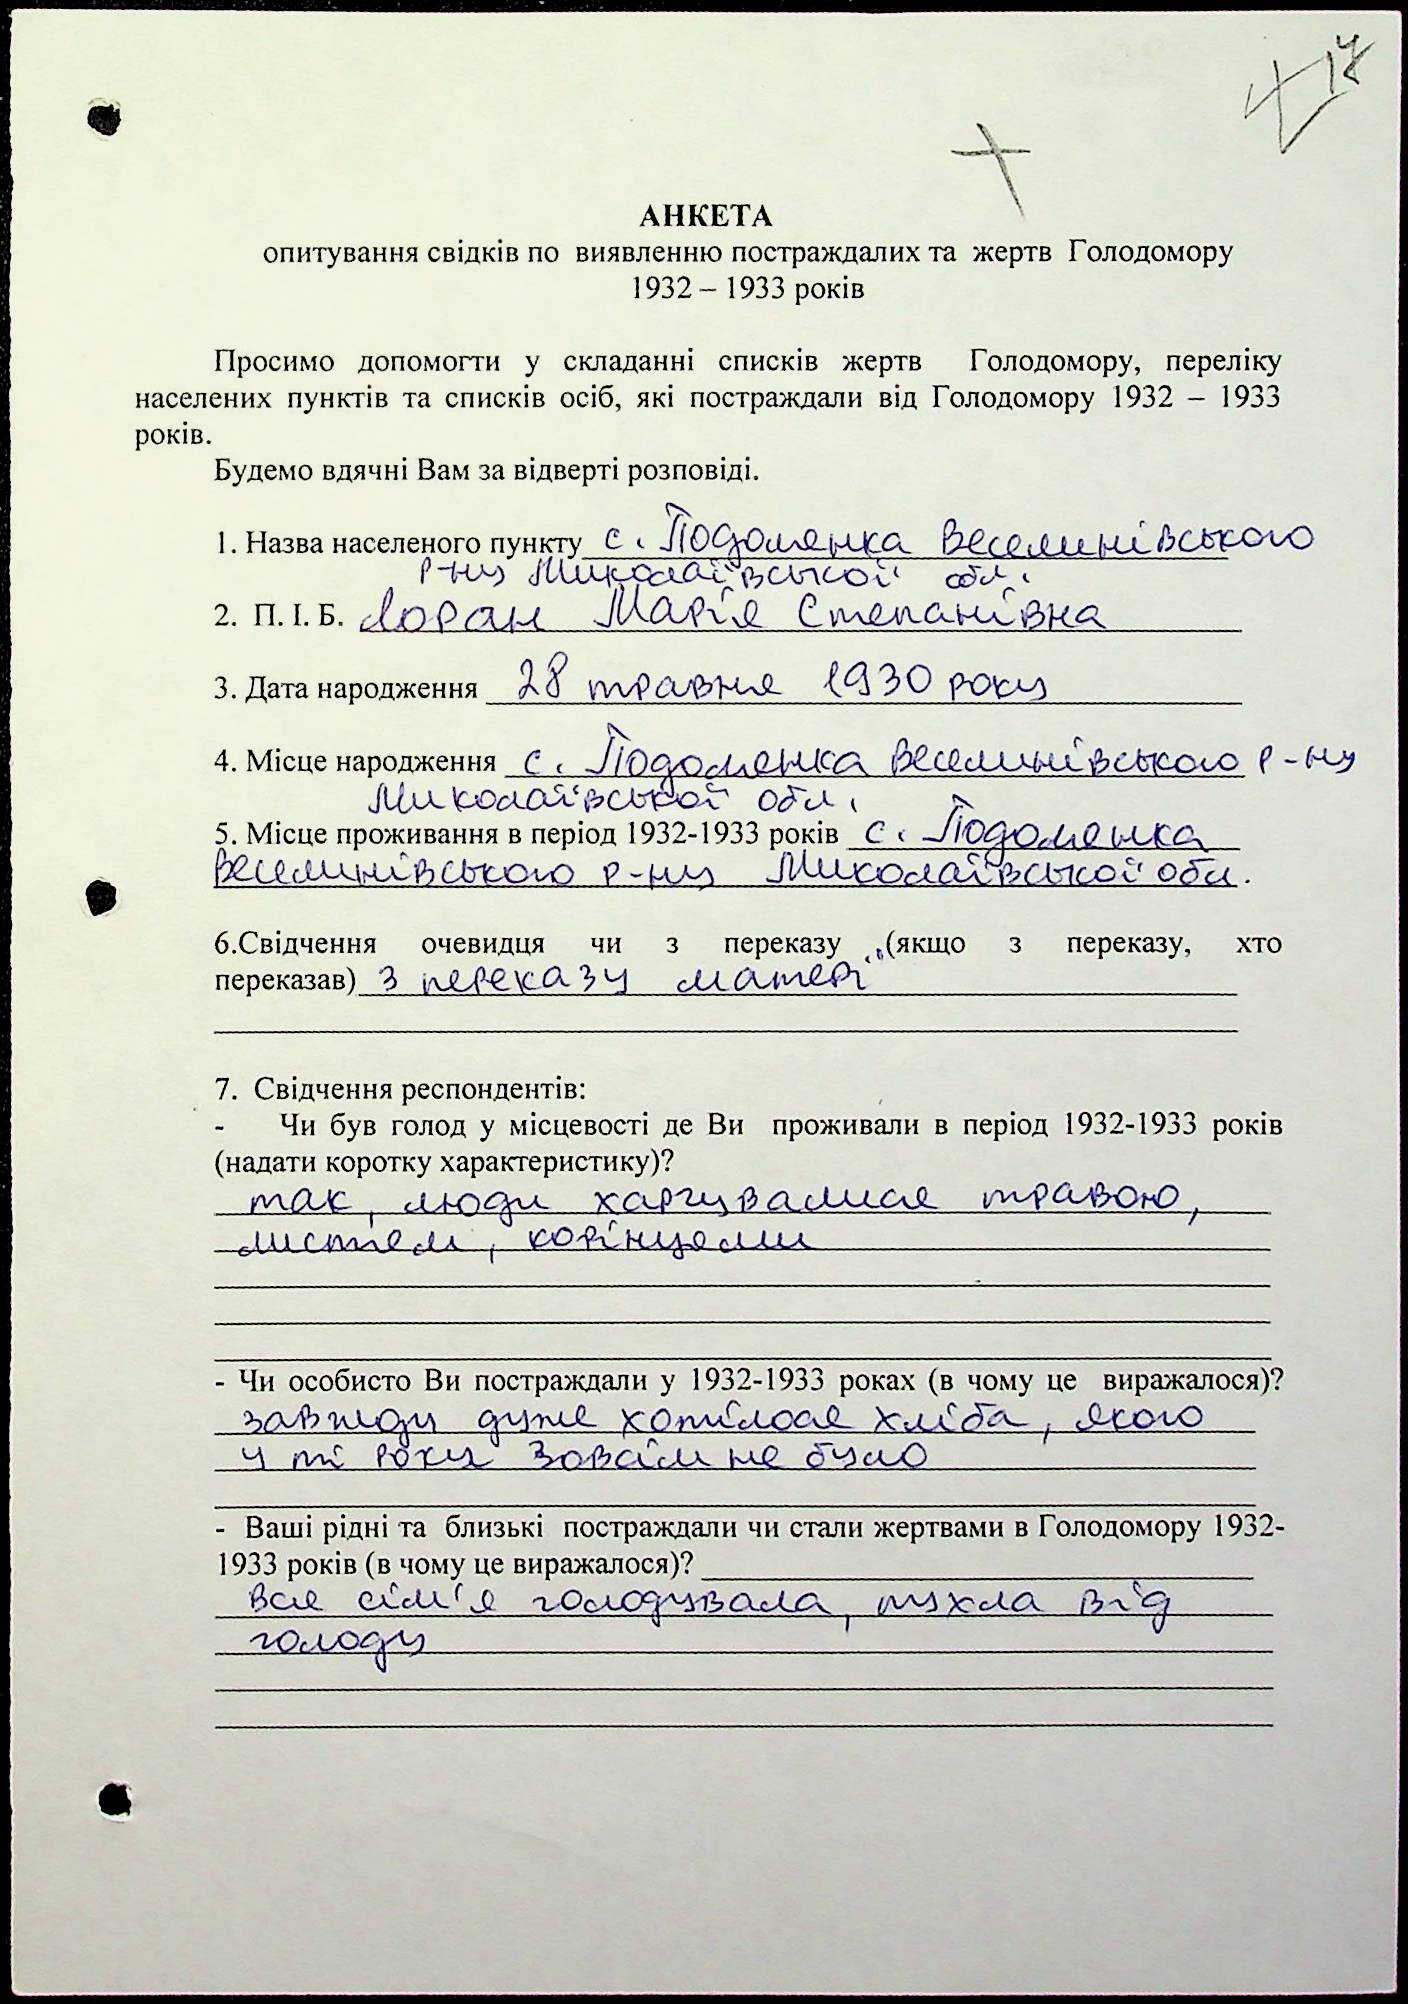 17
АНКЕТА
опитування свідків по виявленню постраждалих та жертв Голодомору
1932 – 1933 років
Просимо допомогти у складанні списків жертв Голодомору, переліку
населених пунктів та списків осіб, які постраждали від Голодомору 1932 – 1933
років.
Будемо вдячні Вам за відверті розповіді.
1. Назва населеного пункту с. Подоленка Веселинівського
р-ну Миколаївської обл.
2. П. І. Б. Лоран Марія Степанівна
3. Дата народження 28 травня 1930 року
4. Місце народження с. Подоленка Веселинівського р-ну
Миколаївської обл.
5. Місце проживання в період 1932-1933 років с. Подоленка
Веселинівського р-ну Миколаївської обл.
6.Свідчення очевидця чи з переказу (якщо з переказу, хто
переказав) з переказу матері
7. Свідчення респондентів:
- Чи був голод у місцевості де Ви проживали в період 1932-1933 років
(надати коротку характеристику)?
так, люди харчувалися травою,
листям, корінцями
- Чи особисто Ви постраждали у 1932-1933 роках (в чому це виражалося)?
завжди дуже хотілося хліба, якого
у ті роки зовсім не було
- Ваші рідні та близькі постраждали чи стали жертвами в Голодомору 1932-
1933 років (в чому це виражалося)?
вся сім'я голодувала, пухла від
голоду